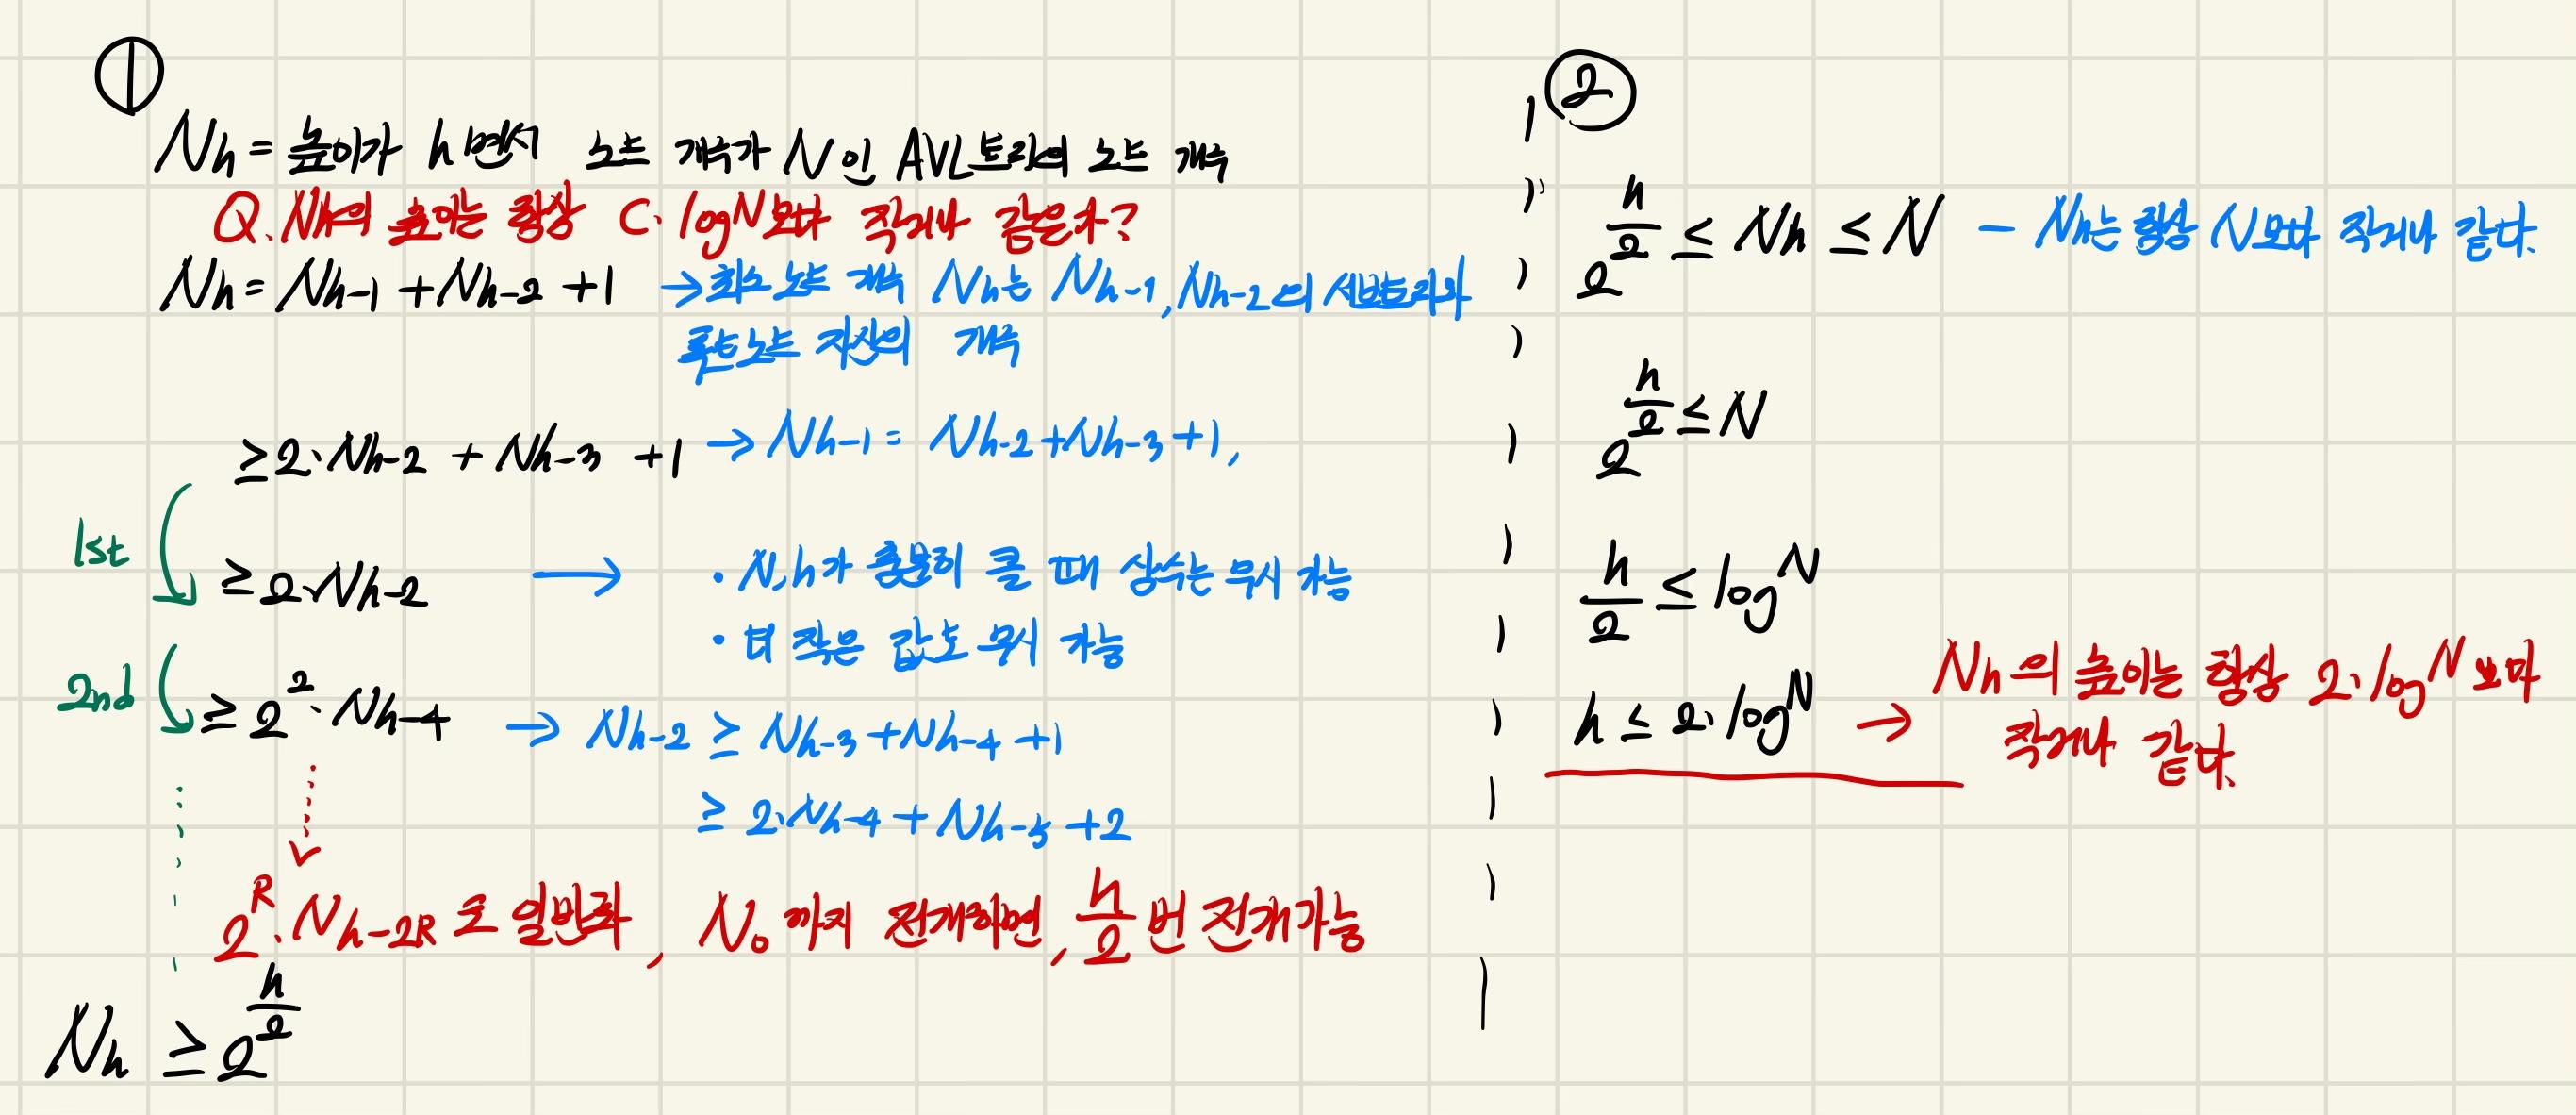 ①
Nh = 높이가 h면서 노드 개수가 N인 AVL트리의 노드 개수
Q. Nh의 높이는 항상 C·logN보다 작거나 같은가?
Nh = Nh-1 + Nh-2 + 1 → 최소 노드 개수 Nh는 Nh-1, Nh-2의 서브트리와
루트노드 자신의 개수
≥ 2·Nh-2 + Nh-3 + 1 → Nh-1 = Nh-2 + Nh-3 + 1,
1st
≥ 2·Nh-2 → · N, h가 충분히 클 때 상수는 무시 가능
· 더 작은 값도 무시 가능
2nd
≥ 2^2 · Nh-4 → Nh-2 ≥ Nh-3 + Nh-4 + 1
≥ 2·Nh-4 + Nh-5 + 2
2^R · Nh-2R로 일반화, N0까지 전개하면, h/2번 전개가능
Nh ≥ 2^(h/2)
②
2^(h/2) ≤ Nh ≤ N - Nh는 항상 N보다 작거나 같다.
2^(h/2) ≤ N
h/2 ≤ logN
h ≤ 2·logN → Nh의 높이는 항상 2·logN보다
작거나 같다.